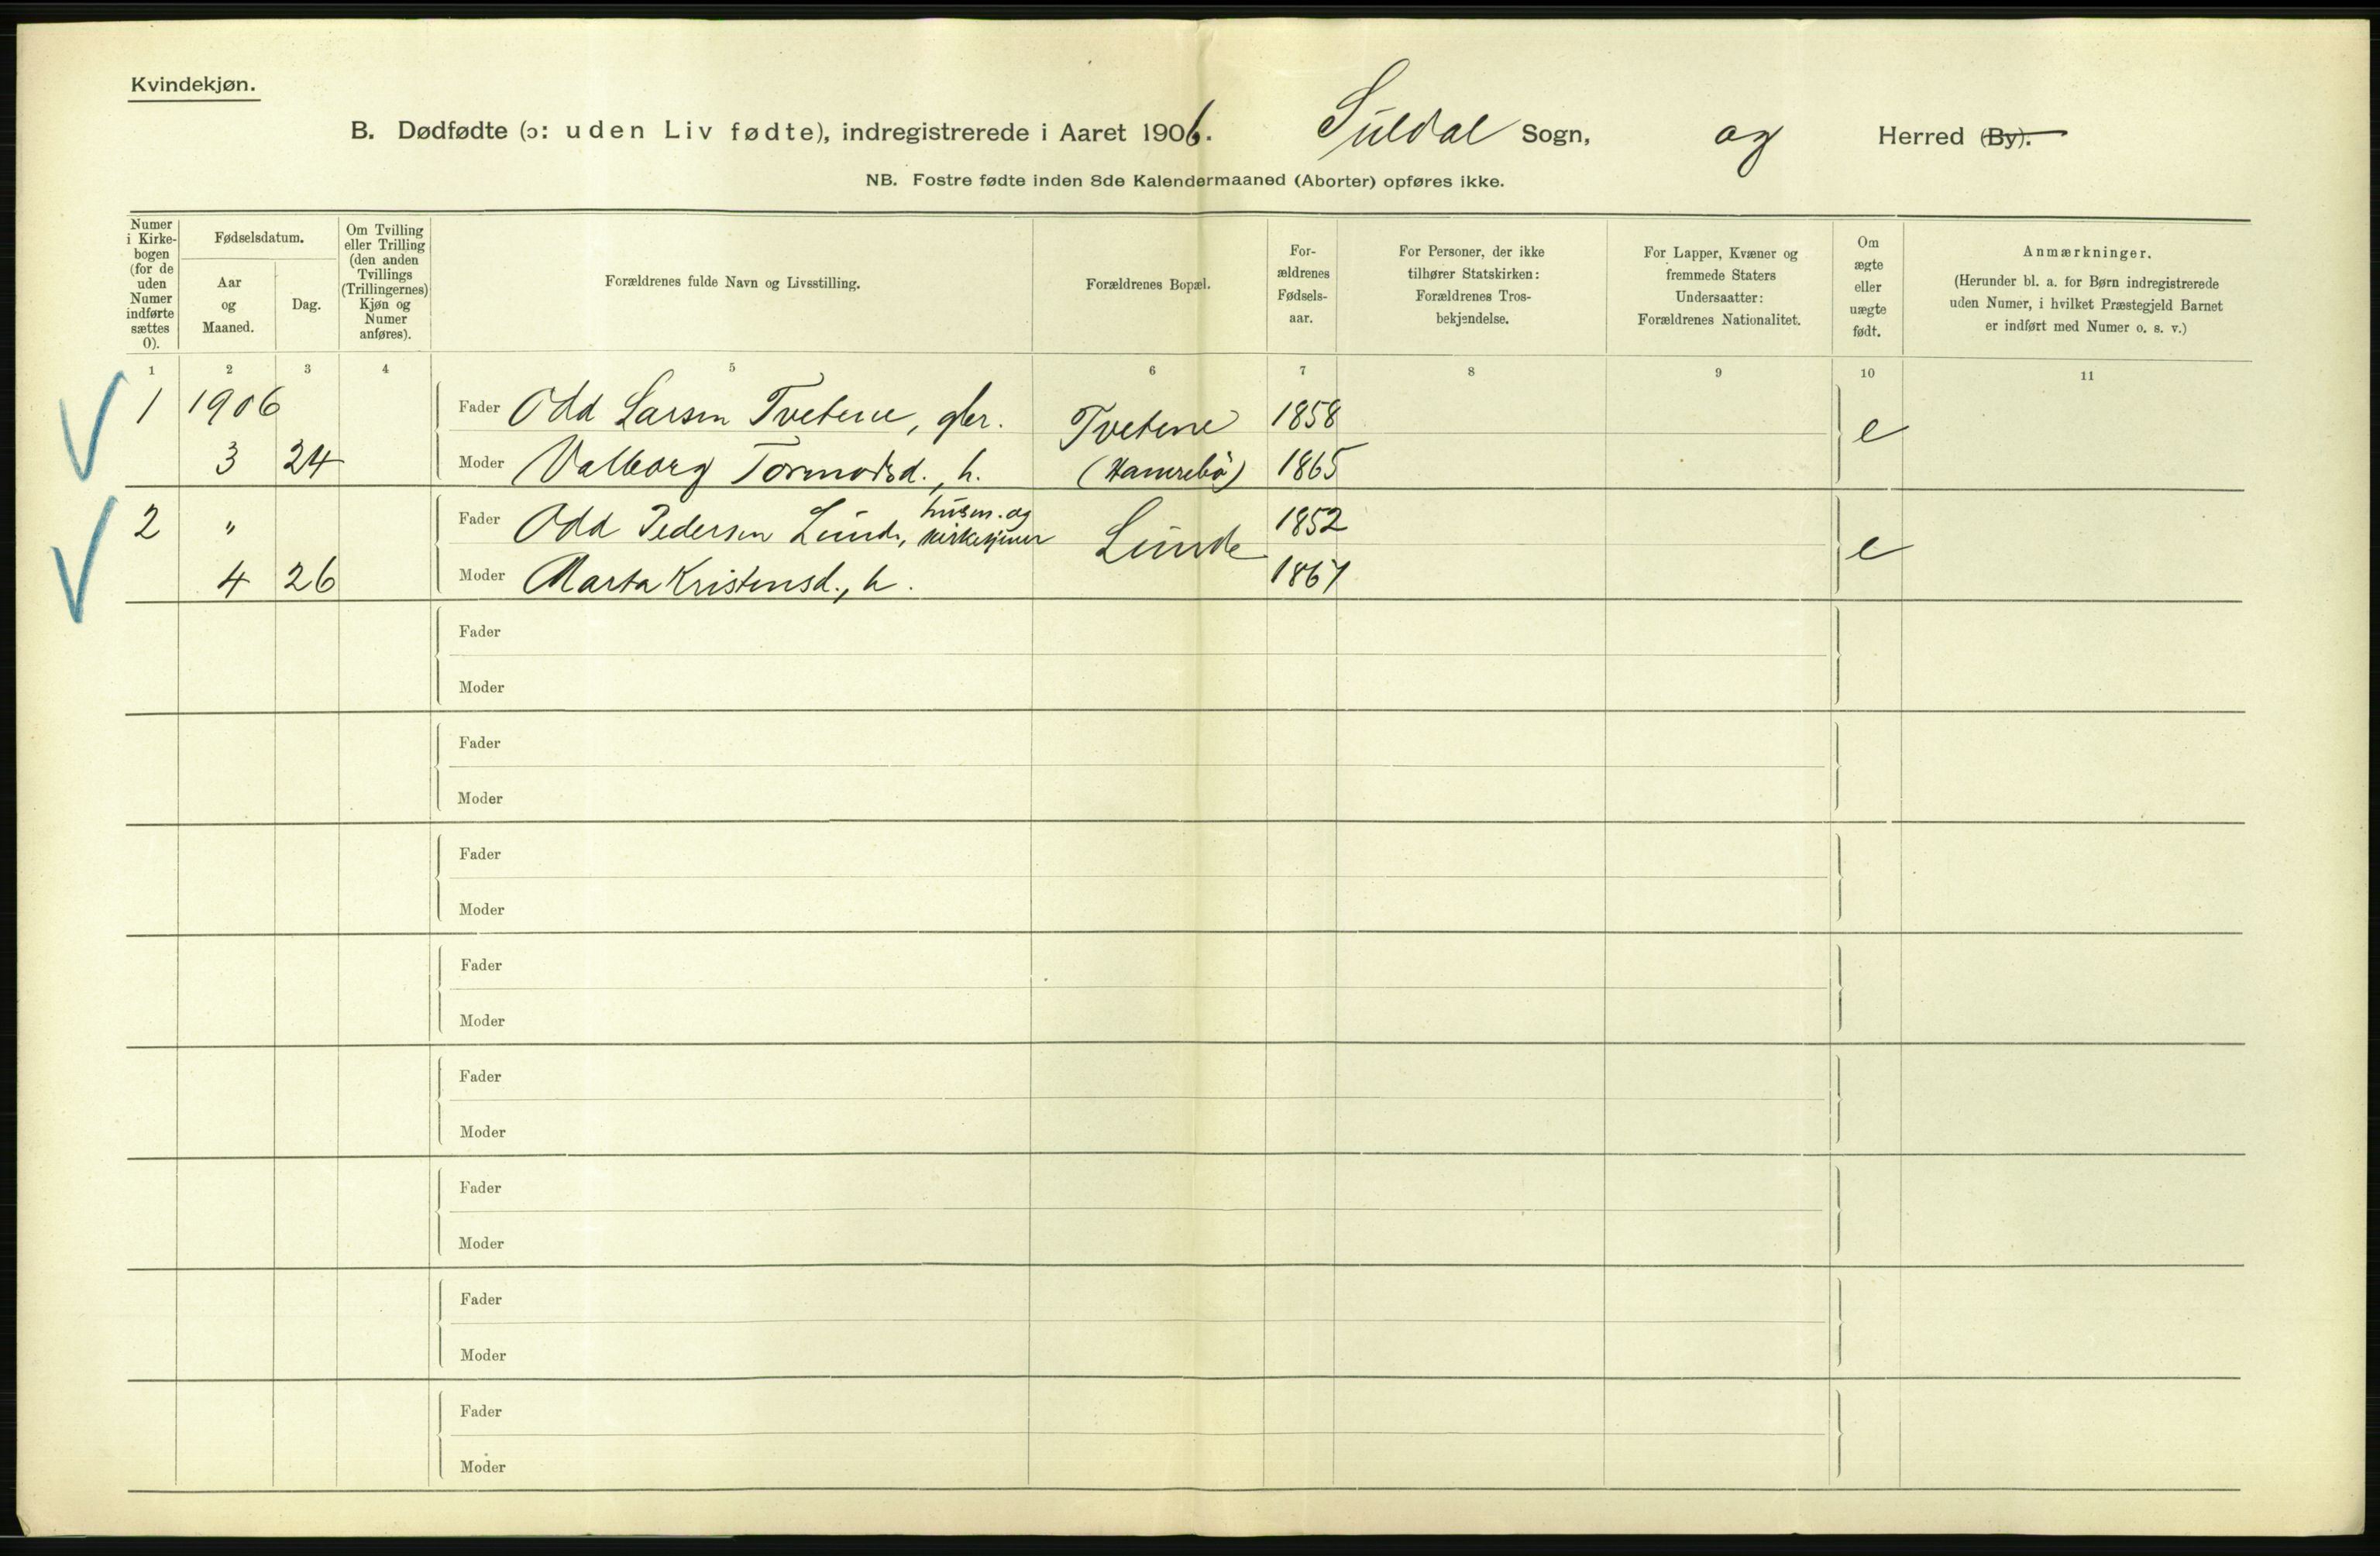 Kvindekjøn.
B. Dødfødte (ɔ: uden Liv fødte), indregistrerede i Aaret 1906. Suldal Sogn, og Herred (By).
NB. Fostre fødte inden 8de Kalendermaaned (Aborter) opføres ikke.
Numer
i Kirke-
bogen
(for de
uden
Numer
indførte
sættes
0).
Fødselsdatum.
Aar
og
Maaned.
Dag.
Om Tvilling
eller Trilling
(den anden
Tvillings
(Trillingernes)
Kjøn og
Numer
anføres).
Forældrenes fulde Navn og Livsstilling.
Forældrenes Bopæl.
For-
ældrenes
Fødsels-
aar.
For Personer, der ikke
tilhører Statskirken:
Forældrenes Tros-
bekjendelse.
For Lapper, Kvæner og
fremmede Staters
Undersaatter:
Forældrenes Nationalitet.
Om
ægte
eller
uægte
født.
Anmærkninger.
(Herunder bl. a. for Børn indregistrerede
uden Numer, i hvilket Præstegjeld Barnet
er indført med Numer o. s. v.)
1 2 3 4 5 6 7 8 9 10 11
1 1906 Fader Odd Larsen Tvetene, gbr. Tvetene 1858 e
3 24 Moder Valborg Tormodsd., h. (Hamrebø) 1865
husm. og
2 " Fader Odd Pedersen Lunde, kirketjener Lunde 1852 e
4 26 Moder Marta Kristensd., h. 1867
Fader
Moder
Fader
Moder
Fader
Moder
Fader
Moder
Fader
Moder
Fader
Moder
Fader
Moder
Fader
Moder